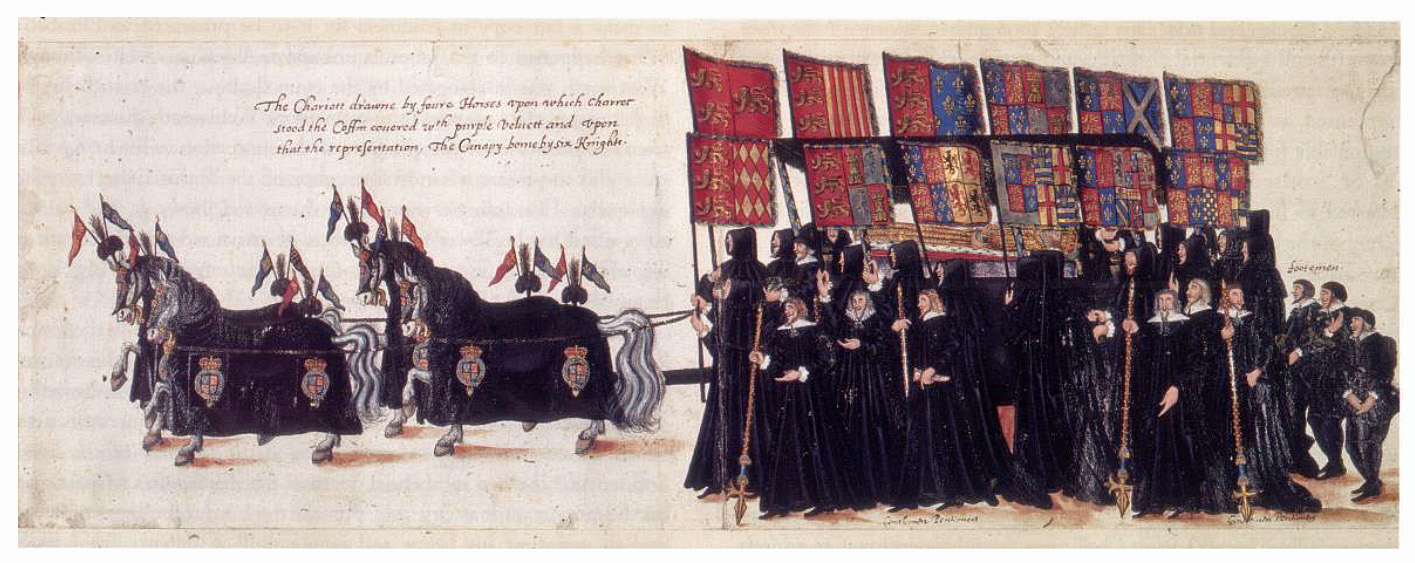 The Chariott drawne by foure Horses vpon which Charret
stood the Coffin couered wth purple Veluett and vpon
that the representation, The Canapy borne by six Knights.
footemen.
Gentlemen Pentioners
Gentlemen Pentioners